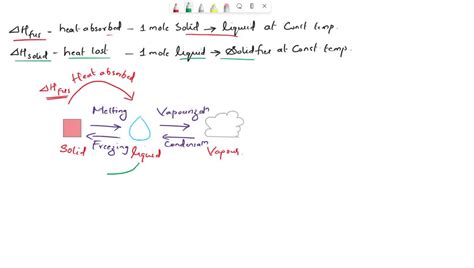 ΔHfus - heat absorbed - 1 mole Solid → liquid at Const temp.
ΔHsolid - heat lost - 1 mole liquid → Solidfies at Const temp.
ΔHfus Heat absorbed
Melting Vapourizn
Freezing Condensan
Solid liquid Vapour.